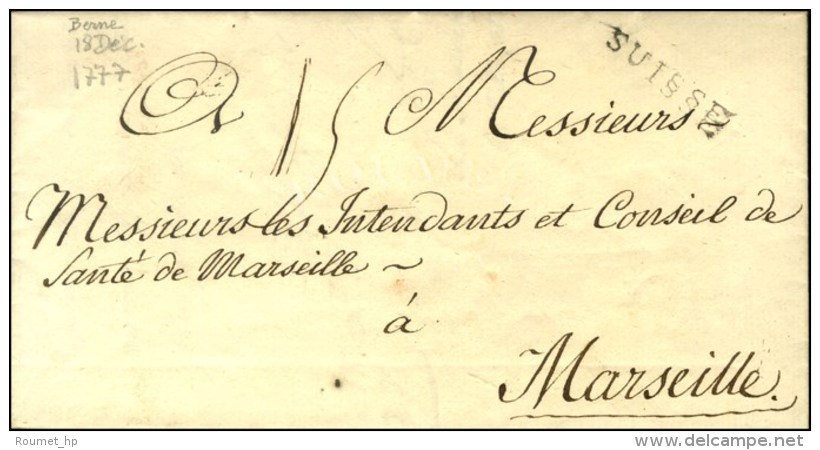 Berne
18 Déc.
1777
SUISSE
A 15 Messieurs
Messieurs les Intendants et Conseil de
Santé de Marseille ~
à
Marseille.
Roumet_hp
delcampe.net